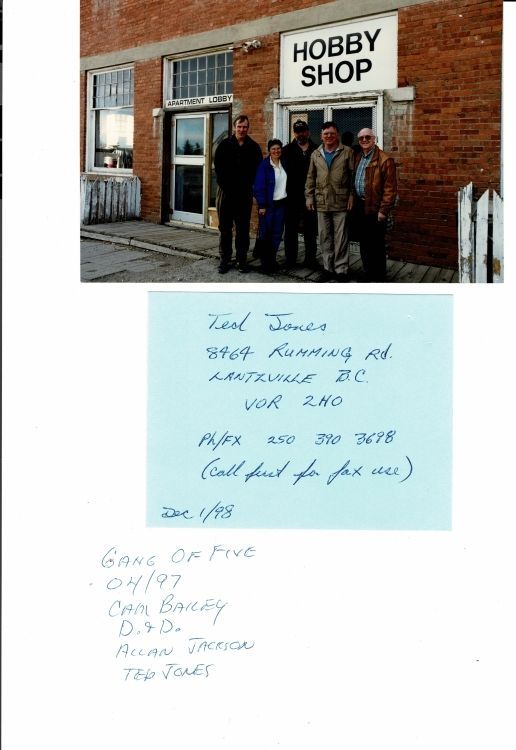 HOBBY
SHOP
APARTMENT LOBBY
Ted Jones
8464 RUMMING Rd.
LANTZVILLE B.C.
V0R 2H0
Ph/FX 250 390 3698
(call first for fax use)
Dec 1/98
GANG OF FIVE
04/97
CAM BAILEY
D.&D.
ALLAN JACKSON
TED JONES